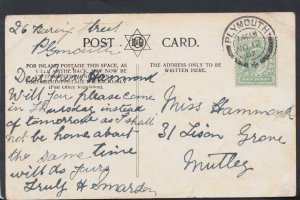 26 Waring Street
Plymouth
POST CARD.
FOR INLAND POSTAGE THIS SPACE, AS
THE ADDRESS ONLY TO BE
WRITTEN HERE.
(Post Office Regulation).
Dear Miss Hammond
Will you please come
in Thursday instead
of tomorrow as I shall
not be home about
the same time
will do yours
Truly H Smardon
Miss Hammond
31 Lison Grove
Mutley
PLYMOUTH
NO 12
HALF PENNY